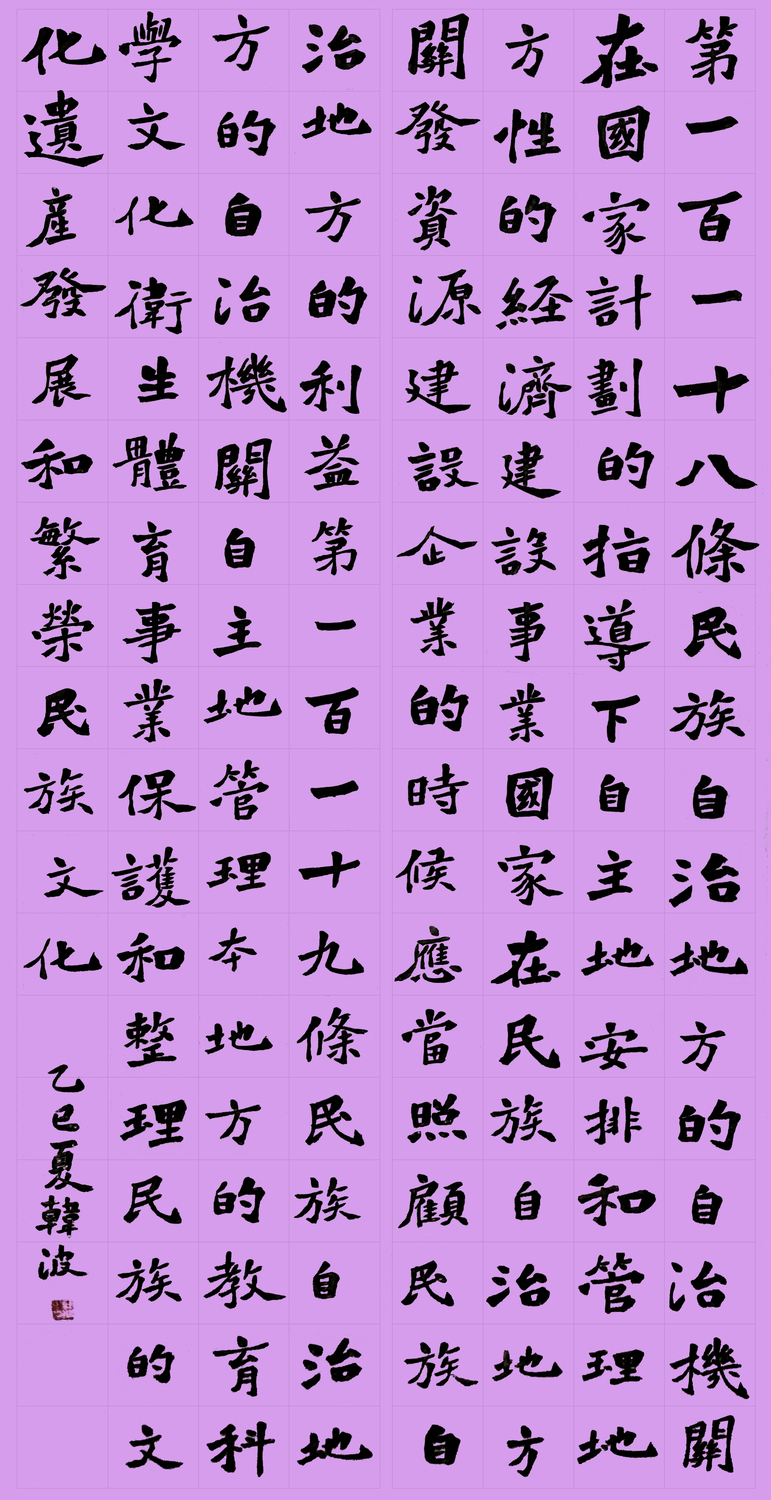 第一百一十八條民族自治地方的自治機關
在國家計劃的指導下自主地安排和管理地
方性的経濟建設事業國家在民族自治地方
關發資源建設企業的時候應當照顧民族自
治地方的利益第一百一十九條民族自治地
方的自治機關自主地管理本地方的教育科
學文化衛生體育事業保護和整理民族的文
化遺産發展和繁榮民族文化
乙巳夏韓波